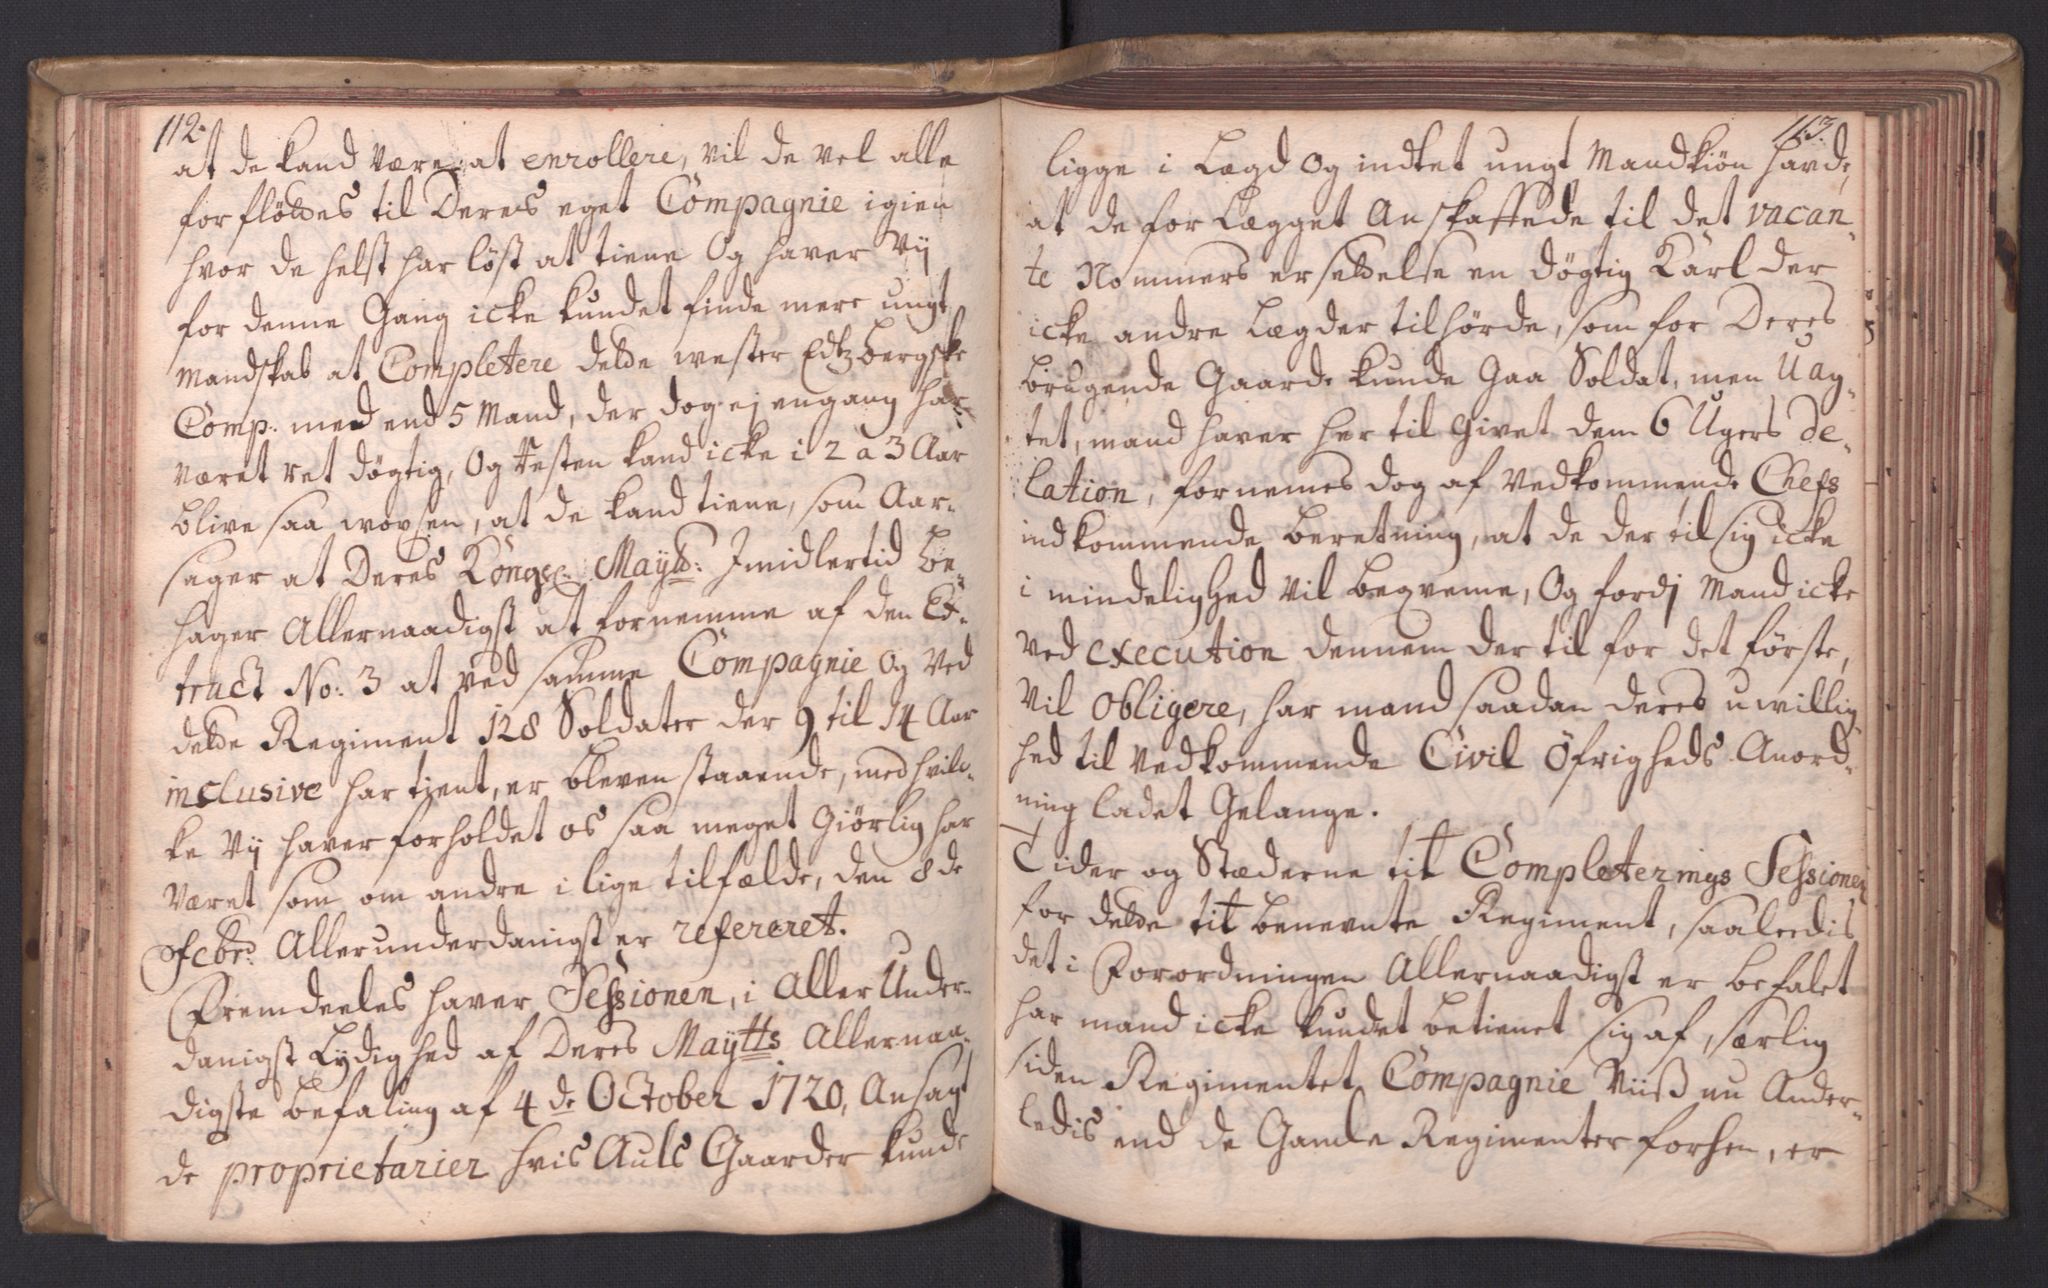 112.
at de kand være at enrollere, vil de vel alle
forflöttes til Deres eget Compagnie igien
hvor de helst har löst at tiene Og haver Vij
for denne Gang icke kundet finde mere ungt
Mandskab at Completere dette wester Edtzbergske
Comp. med end 5 Mand, der dog ej engang har
været ret dögtig, Og Resten kand icke i 2 a 3 Aar
blive saa woxsen, at de kand tiene, som Aar-
sager at Deres Kongel: Mayts: Imidlertid be-
hager Allernaadigst at fornemme af den Ex-
tract No: 3 at ved samme Compagnie og ved
dette Regiment 128 Soldater der 9 til 14 Aar
inclusive har tient, er bleven staaende, med hvil-
ke Vij haver forholdet os saa meget Giörlig har
været som om andre i lige tilfælde, den 8de
Febr: Allerunderdanigst er refereret.
Fremdeeles haver Sessionen, i AllerUnder-
danigst Lydighed af Deres Maytts Allernaa-
digste befaling af 4de October 1720, Ansagt
de proprietarier hvis Auls Gaarder kunde
113.
ligge i Lægd Og indtet ungt Mandkiön havde,
at de for Lægget Anskaffede til det vacan-
te Nommers ersettelse en dögtig Karl der
icke andre Lægder tilhörde, som for Deres
brugende Gaarde kunde Gaa Soldat, men Uag-
tet, mand haver her til Givet dem 6 Ugers De-
lation, fornemes dog af vedkommende Chefs
indkommende beretning, at de der til sig icke
i mindelighed vil beqveme, Og fordj Mand icke
ved execution dennem der til for det förste,
vil obligere, har mand saadan deres uwillig-
hed til vedkommende Civil Öfrigheds Anord-
ning ladet Gelange.
Tider og Stæderne til Completerings Sessionen
for dette tit benevnte Regiment, saaleedis
det i Forordningen Allernaadigst er befalet
har mand icke kundet betienet sig af, særlig
siden Regimentet Compagnie Viiß nu Ander-
ledis end de Gamle Regimenter forhen, er